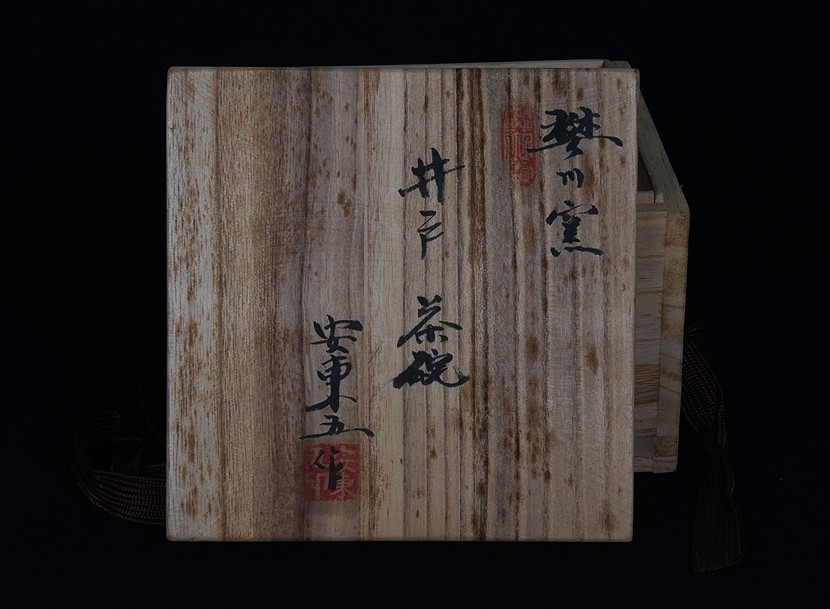 樊川窯
井戸
茶碗
安東五作